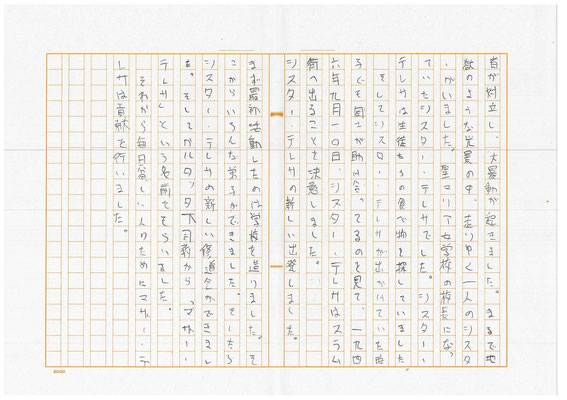 者が対立し、大暴動が起きました。まるで地
獄のような光景の中、走りゆく一人のシスタ
ーがいました。聖マリア女学校の校長になっ
ていたシスター・テレサでした。シスター・
テレサは生徒たちの食べ物を探していました。
そしてシスター・テレサが出かけていた時
子ども同士が助け合ってるのを見て、一九四
六年九月一〇日、シスター・テレサはスラム
街へ出ることを決意しました。
シスター・テレサの新しい出発しました。
まず最初活動したのは学校を造りました。そ
こからいろんな学方ができました。そしたら
シスター・テレサの新しい修道会ができまし
た。そしてカルカッタ大司教から「マザー・
テレサ」という名前をもらいました。
それから毎日貧しい人のためにマザー・テ
レサは貢献を行いました。